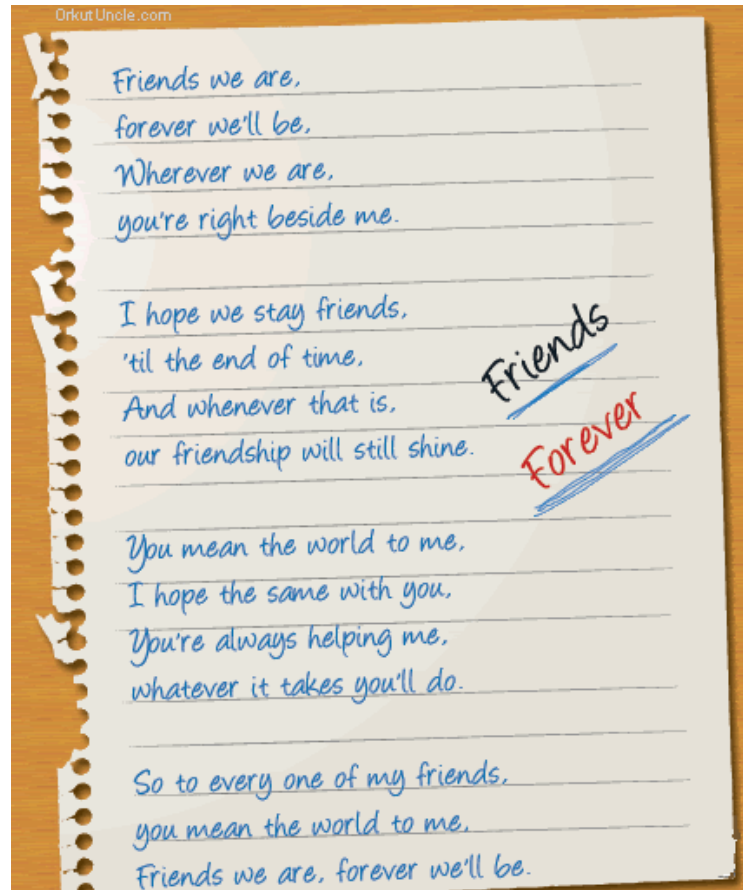 OrkutUncle.com
Friends we are,
forever we'll be,
Wherever we are,
you're right beside me.
I hope we stay friends,
'til the end of time,
And whenever that is,
our friendship will still shine.
Friends
Forever
You mean the world to me,
I hope the same with you,
You're always helping me,
whatever it takes you'll do.
So to every one of my friends,
you mean the world to me,
Friends we are, forever we'll be.